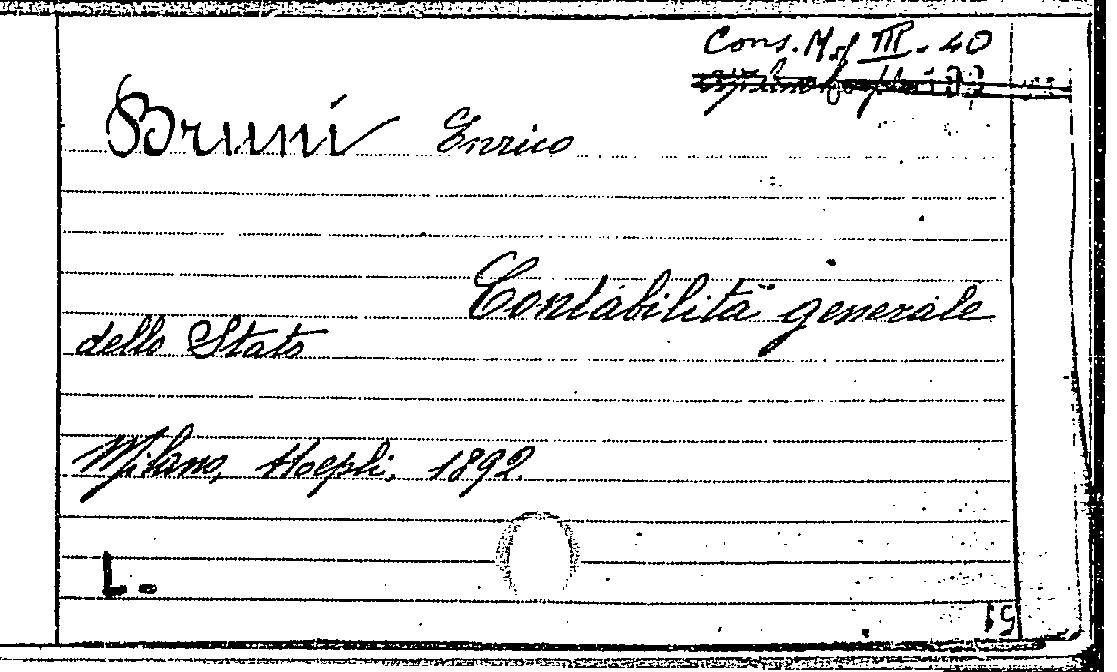 Cons. M. III. 40
Bruni Enrico
Contabilità generale
dello Stato
Milano, Hoepli, 1892.
L.